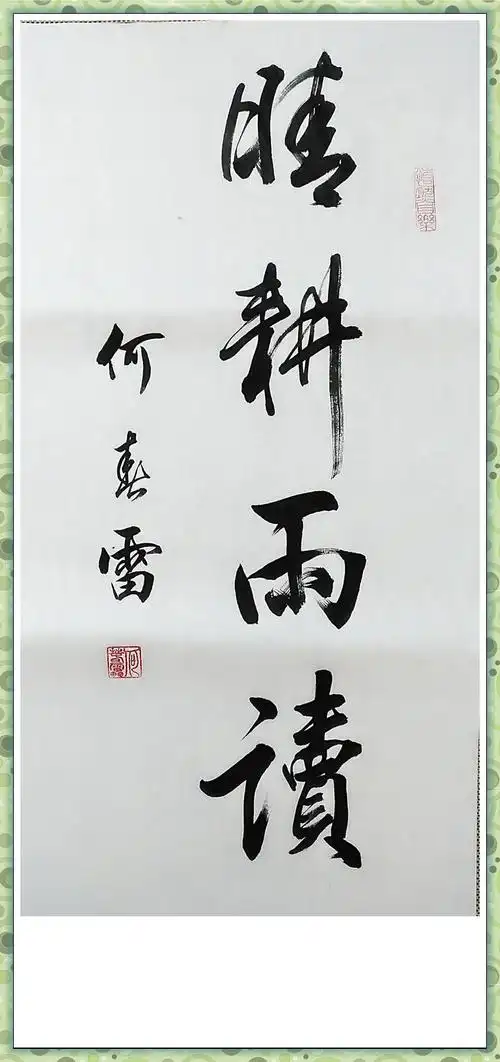 晴耕雨讀
何春雷